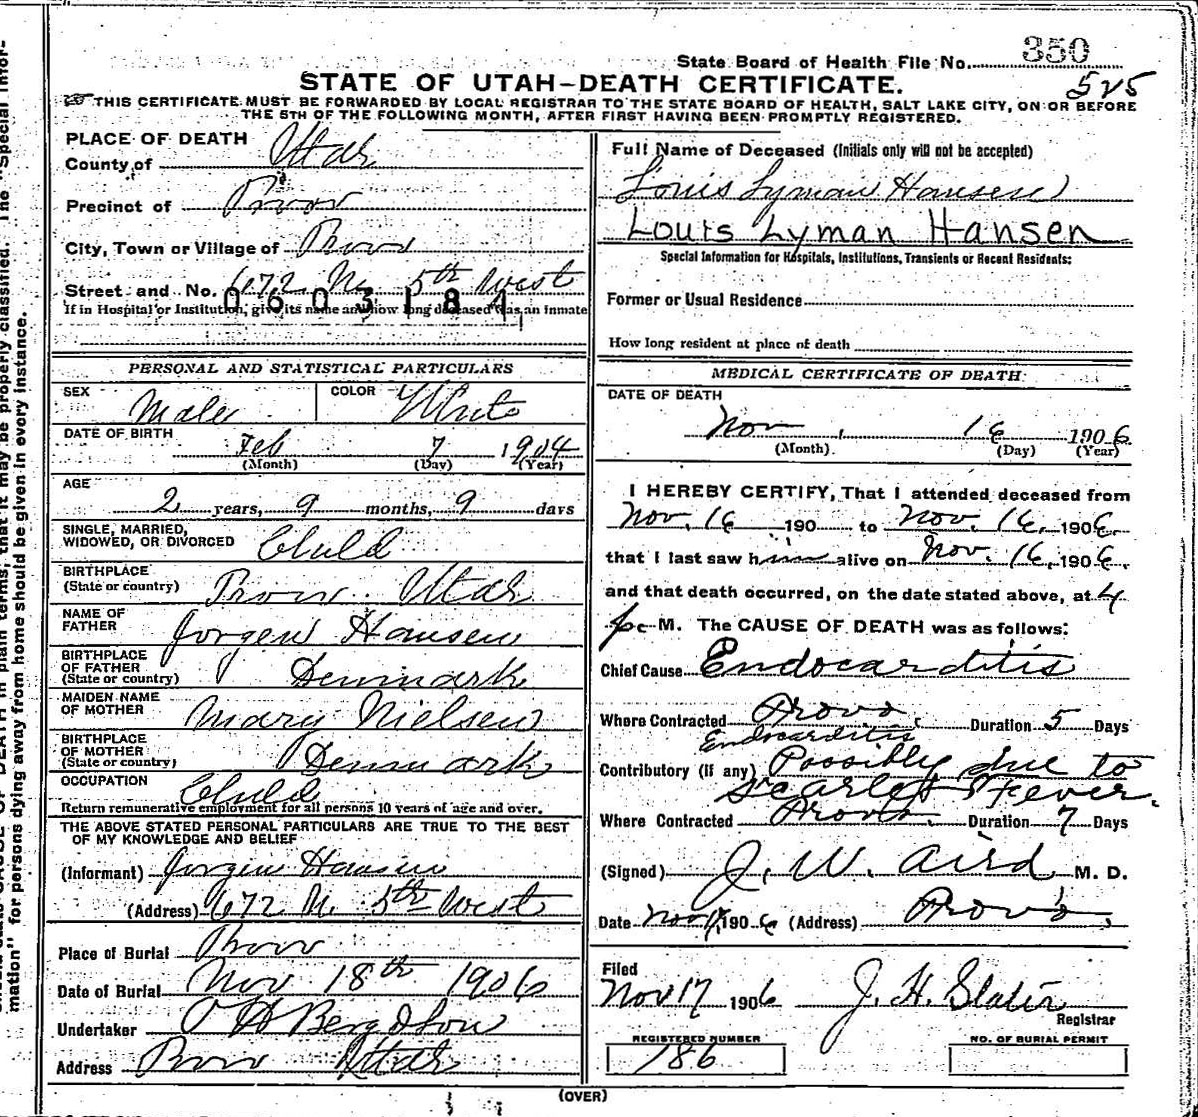 State Board of Health File No. 350
525
STATE OF UTAH—DEATH CERTIFICATE.
THIS CERTIFICATE MUST BE FORWARDED BY LOCAL REGISTRAR TO THE STATE BOARD OF HEALTH, SALT LAKE CITY, ON OR BEFORE
THE 5TH OF THE FOLLOWING MONTH, AFTER FIRST HAVING BEEN PROMPTLY REGISTERED.
PLACE OF DEATH
County of Utah
Precinct of Provo
City, Town or Village of Provo
Street and No. 672 N. 5th West
0603184
If in Hospital or Institution, give its name and how long deceased was an inmate
PERSONAL AND STATISTICAL PARTICULARS
SEX Male COLOR White
DATE OF BIRTH Feb 7 1904
(Month) (Day) (Year)
AGE
2 years, 9 months, 9 days
SINGLE, MARRIED,
WIDOWED, OR DIVORCED Child
BIRTHPLACE
(State or country) Provo Utah
NAME OF
FATHER Jorgen Hansen
BIRTHPLACE
OF FATHER
(State or country) Denmark
MAIDEN NAME
OF MOTHER Mary Nielsen
BIRTHPLACE
OF MOTHER
(State or country) Denmark
OCCUPATION Child
Return remunerative employment for all persons 10 years of age and over.
THE ABOVE STATED PERSONAL PARTICULARS ARE TRUE TO THE BEST
OF MY KNOWLEDGE AND BELIEF
(Informant) Jorgen Hansen
(Address) 672 N. 5th West
Place of Burial Provo
Date of Burial Nov 18th 1906
Undertaker O H Berg & Son
Address Provo Utah
Full Name of Deceased (Initials only will not be accepted)
Louis Lyman Hansen
Louis Lyman Hansen
Special Information for Hospitals, Institutions, Transients or Recent Residents:
Former or Usual Residence
How long resident at place of death
MEDICAL CERTIFICATE OF DEATH
DATE OF DEATH
Nov 16 1906
(Month) (Day) (Year)
I HEREBY CERTIFY, That I attended deceased from
Nov. 16 190 to Nov. 16, 1906.
that I last saw him alive on Nov. 16, 1906.
and that death occurred, on the date stated above, at 4
p. M. The CAUSE OF DEATH was as follows:
Chief Cause Endocarditis
Where Contracted Provo. Duration 5 Days
Endocarditis
Contributory (if any) Possibly due to
Scarlet Fever.
Where Contracted Provo. Duration 7 Days
(Signed) J. W. Aird M. D.
Date Nov 1906 (Address) Provo.
Filed
Nov 17 1906 J. H. Slater
Registrar
REGISTERED NUMBER
186
NO. OF BURIAL PERMIT
(OVER)
mation" for persons dying away from home should be given in every instance.
CAUSE OF DEATH in plain terms, that it may be properly classified. The "Special Infor-